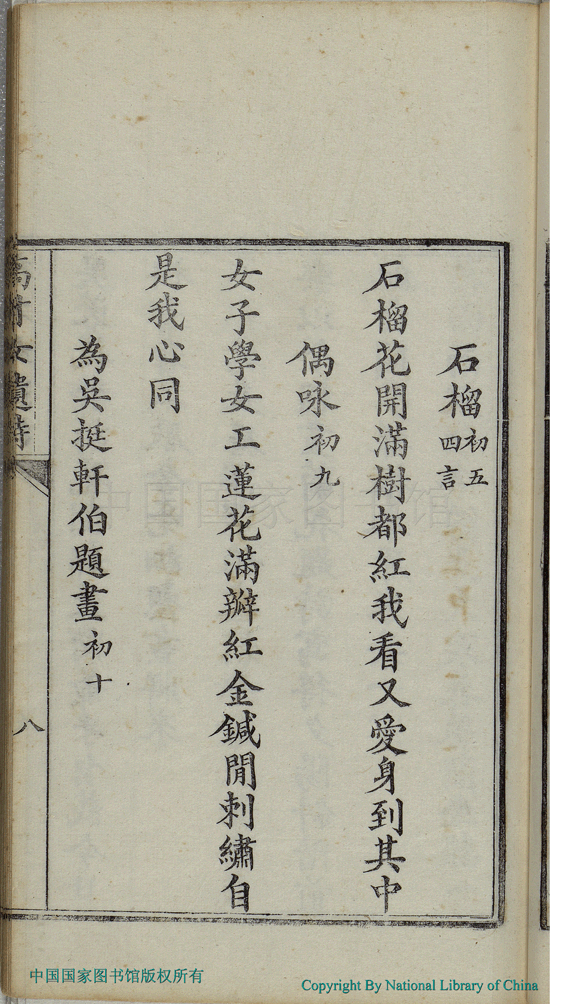 石榴初五四言
石榴花開滿樹都紅我看又愛身到其中
偶咏初九
女子學女工蓮花滿瓣紅金鍼閒刺繡自
是我心同
為吳挺軒伯題畫初十
女遺詩
八
中国国家图书馆
中国国家图书馆版权所有
Copyright By National Library of China